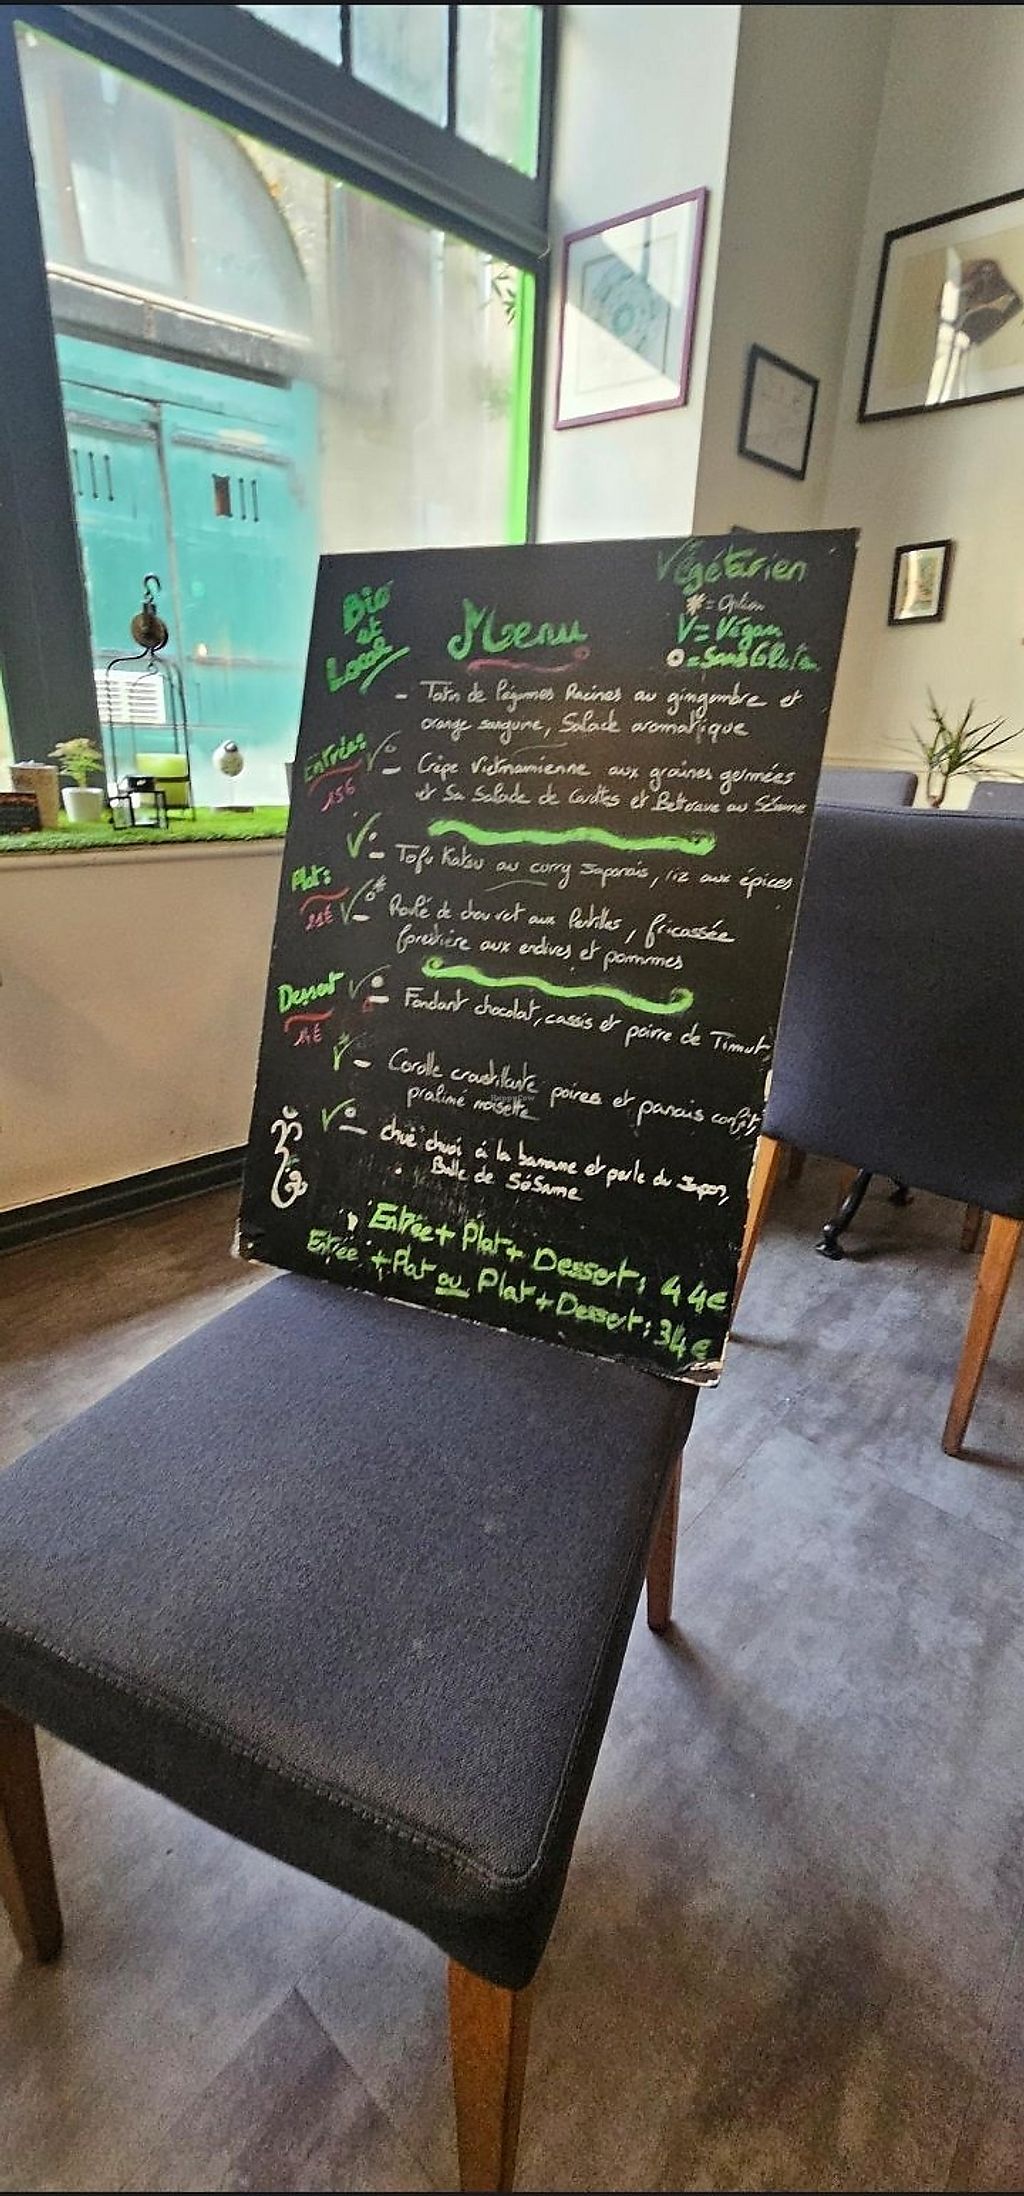 Bio
et
Local
Menu
Végétarien
* = Option
V = Végan
o = Sans Gluten
- Tatin de légumes Racines au gingembre et
orange sanguine, Salade aromatique
Entrées
15€
V° - Crêpe Vietnamienne aux graines germées
et Sa Salade de Carottes et Betterave au Sésame
V° - Tofu Katsu au curry Japonais, riz aux épices
Plat:
21€
V°* - Roulé de chou vert aux lentilles, fricassée
forestière aux endives et pommes
Dessert
14€
V° - Fondant chocolat, cassis et poivre de Timut,
V* - Corolle croustillante poires et panais confit,
praliné noisette
V° - chuè chuoi à la banane et perle du Japon,
Bulle de SéSame
Entrée + Plat + Dessert: 44€
Entrée + Plat ou Plat + Dessert: 34€